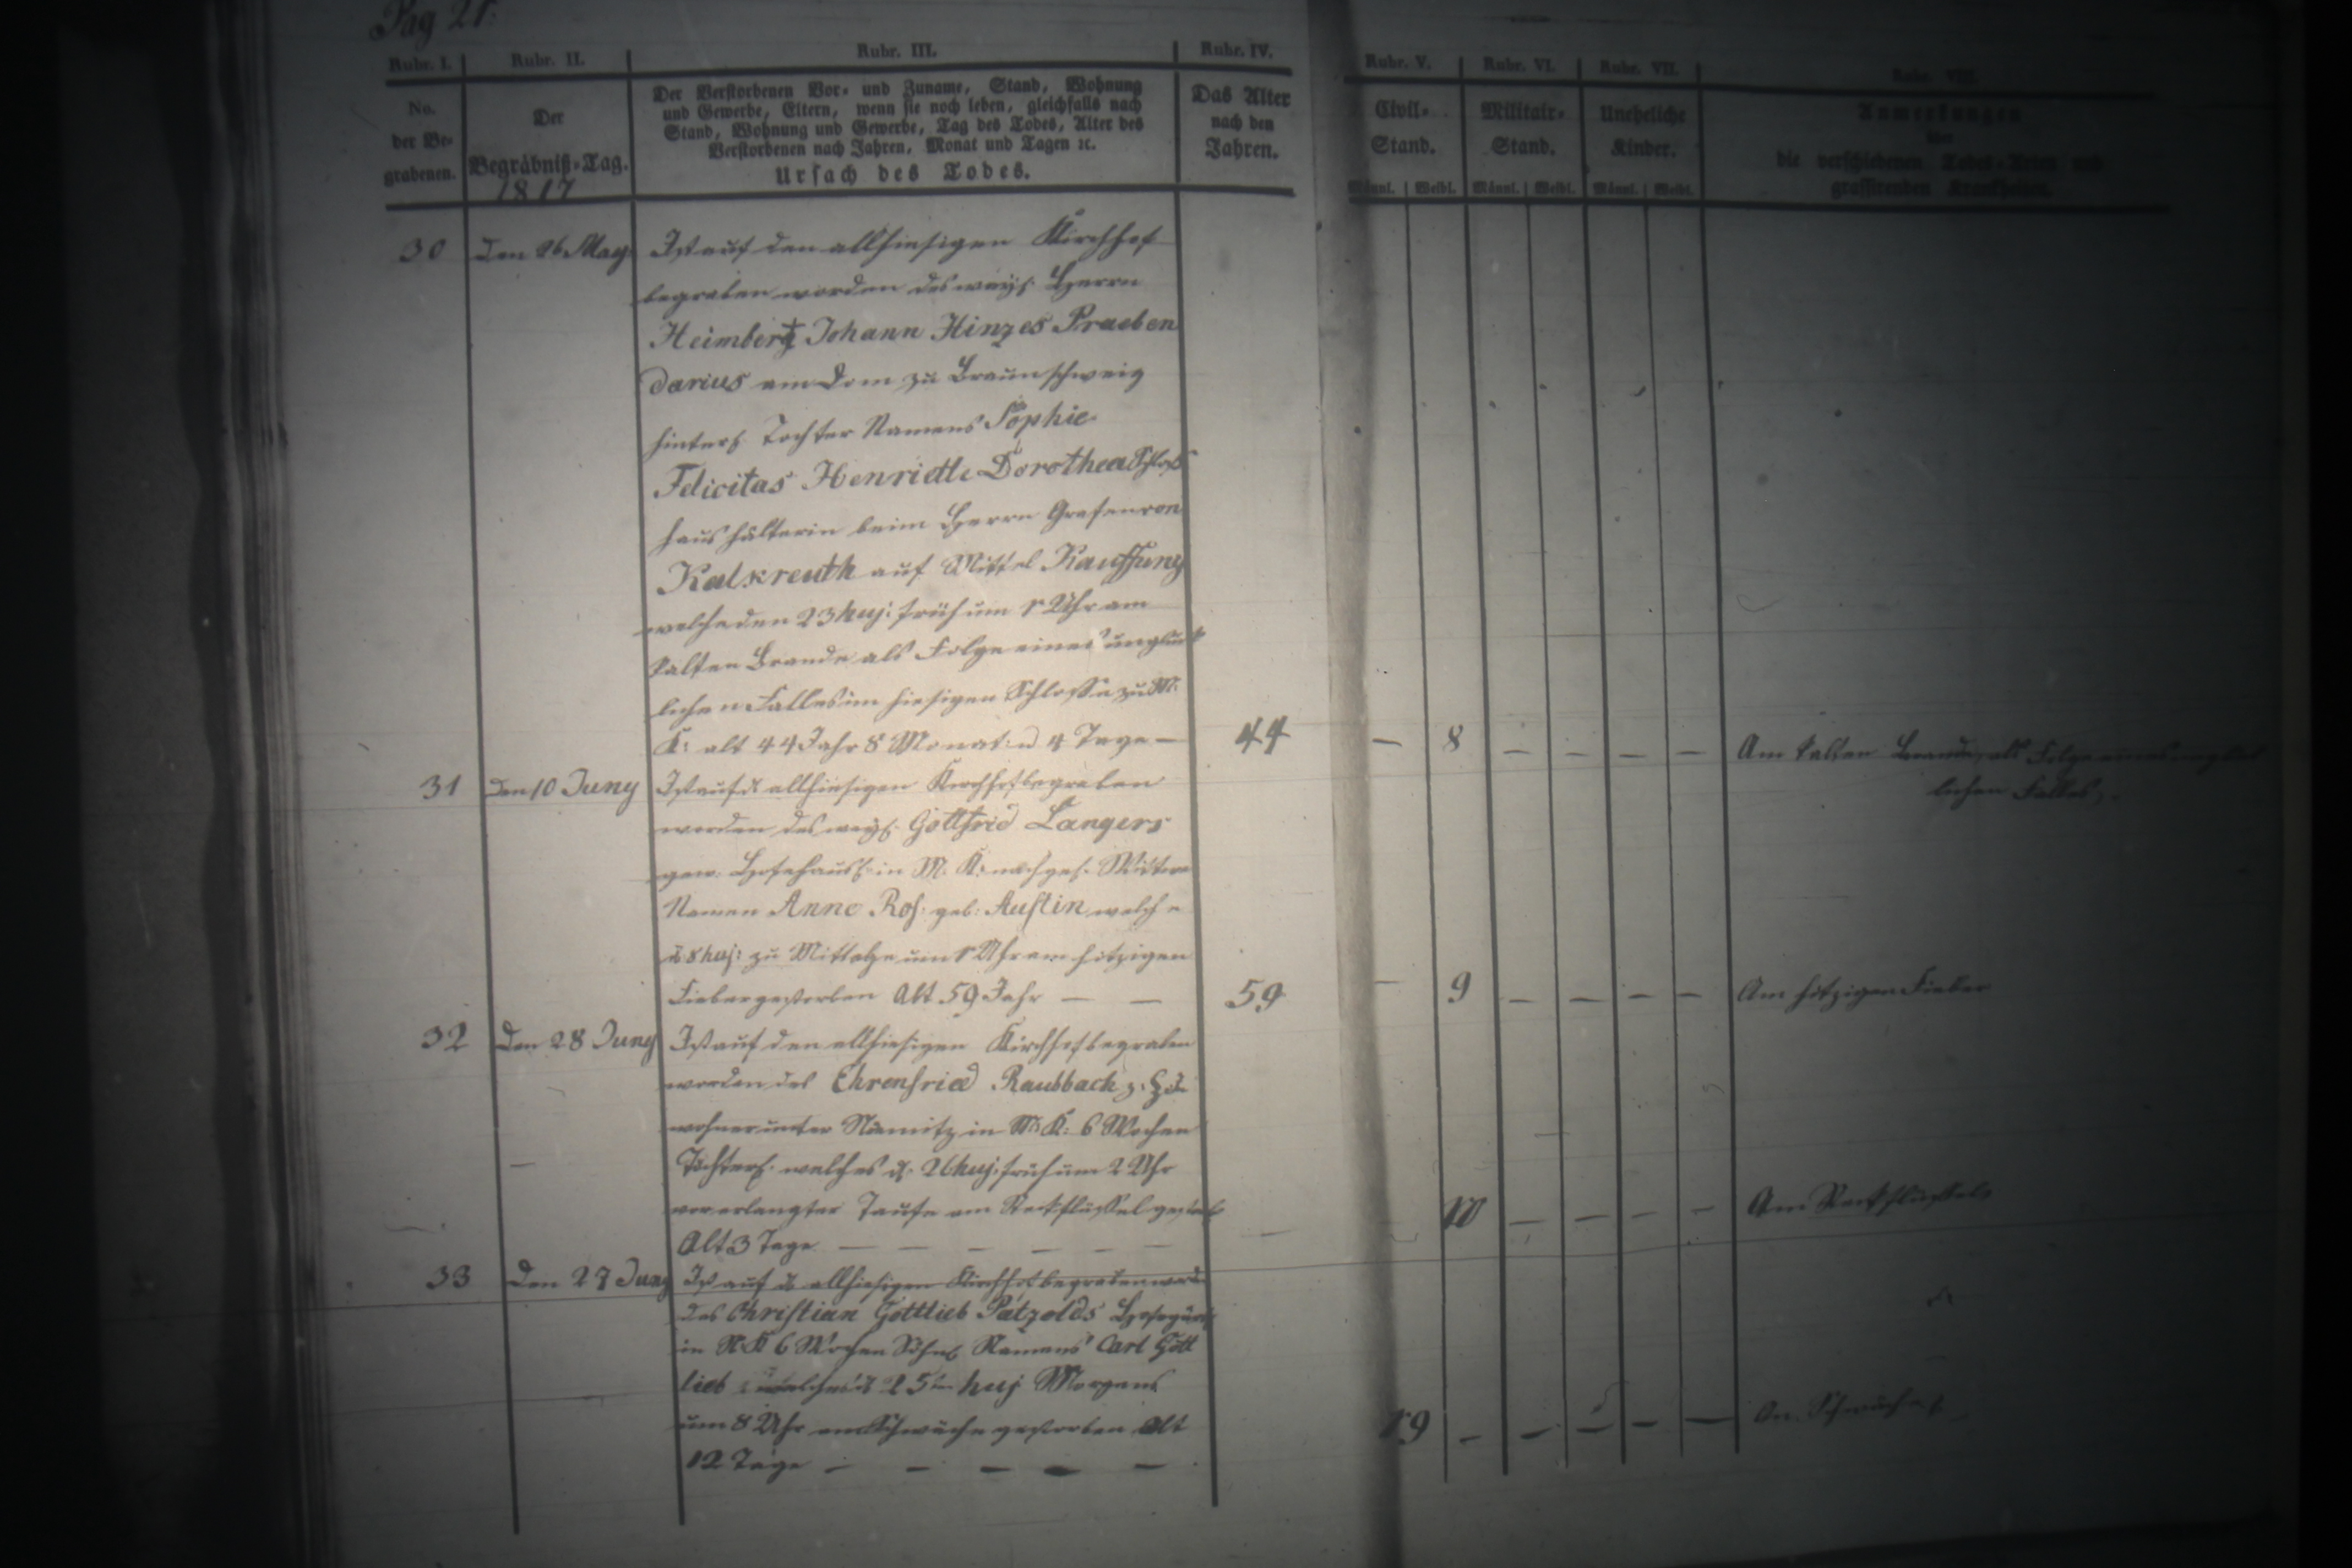 Pag 21.
Rubr. I.
Rubr. II.
Rubr. III.
Rubr. IV.
Rubr. V.
Rubr. VI.
Rubr. VII.
Rubr. VIII.
No.
der Be-
grabenen.
Der
Begräbniß-Tag.
1817
Der Verstorbenen Vor- und Zuname, Stand, Wohnung
und Gewerbe, Eltern, wenn sie noch leben, gleichfalls nach
Stand, Wohnung und Gewerbe, Tag des Todes, Alter des
Verstorbenen nach Jahren, Monat und Tagen ꝛc.
Ursach des Todes.
Das Alter
nach den
Jahren.
Civil-
Stand.
Männl. Weibl.
Militair-
Stand.
Männl. Weibl.
Uneheliche
Kinder.
Männl. Weibl.
Anmerkungen
über
die verschiedenen Todes-Arten und
grassirenden Krankheiten.
30 den 26 May
Ist auf den allhiesigen Kirchhof
begraben worden des weyl. Herrn
Heimbert Johann Hinzes Praeben
darius am Dom zu Braunschweig
hinterl. Tochter Namens Sophie
Felicitas Henriette Dorothea Schloß
haushälterin beim Herrn Grafen von
Kalkreuth auf Mittel Kauffung
welche den 23 huj: früh um 1 Uhr am
kalten Brande als Folge eines unglück
lichen Falles im hiesigen Schlosse zu M.
K: alt 44 Jahr 8 Monat u 4 Tage —
44 — 8 — — — —
Am kalten Brande, als Folge eines unglück
lichen Falles.
31 den 10 Juny
Ist auf d allhiesigen Kirchhof begraben
worden des weyl. Gottfried Langers
gew. Hofehäusl. in M. K: nachgel. Wittwe
Namen Anne Ros: geb: Austin welche
d 8 huj: zu Mittage um 1 Uhr am hitzigen
Fieber gestorben Alt 59 Jahr — —
59 — 9 — — — —
Am hitzigen Fieber
32 Den 28 Juny
Ist auf den allhiesigen Kirchhof begraben
worden des Ehrenfried Raubbach
wohner unter in K: 6 Wochen
Töchterl. welches d. 26 huj: früh um 2 Uhr
vor erlangter Taufe am Steckflussel
Alt 3 Tage — — — — — —
10 — — — —
Am Steckflussel
33 Den 27 Juny
Ist auf d allhiesigen Kirchhof begraben
des Christian Gottlieb Pätzolds
in K 6 Wochen Söhnl Namens Carl Gott
lieb welches d 25ten huj Morgens
um 8 Uhr an Schwäche gestorben Alt
12 Tage — — — — —
19 — — — — —
An Schwäche